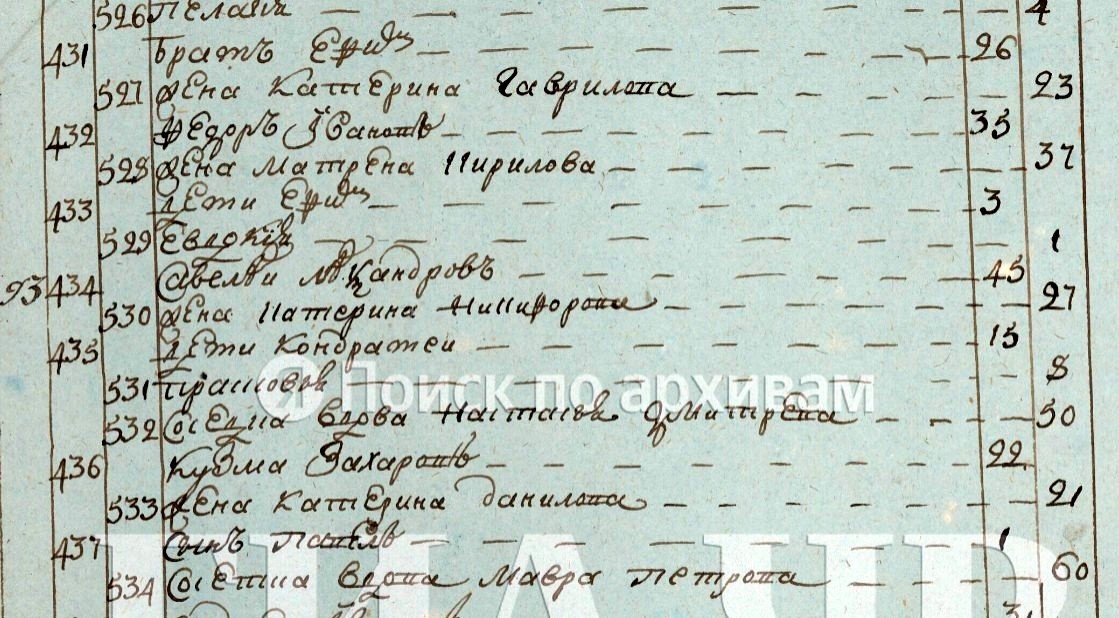 526 Пелагия 4
431 братъ Ефим 26
527 жена Катерина Гаврилова 23
432 Федоръ Івановъ 35
528 жена Матрена Кирилова 37
433 дети Ефим 3
529 Евдокия 1
93 434 Савелей 45
530 жена Катерина Никифорова 27
435 дети Кондратеи 15
531 Прасковя 8
532 вдова Настасья Дмитрева 50
436 Кузма Захаровъ 22
533 жена Катерина данилова 21
437 Сынъ Павелъ 1
534 вдова Мавра Петрова 60
Я Поиск по архивам